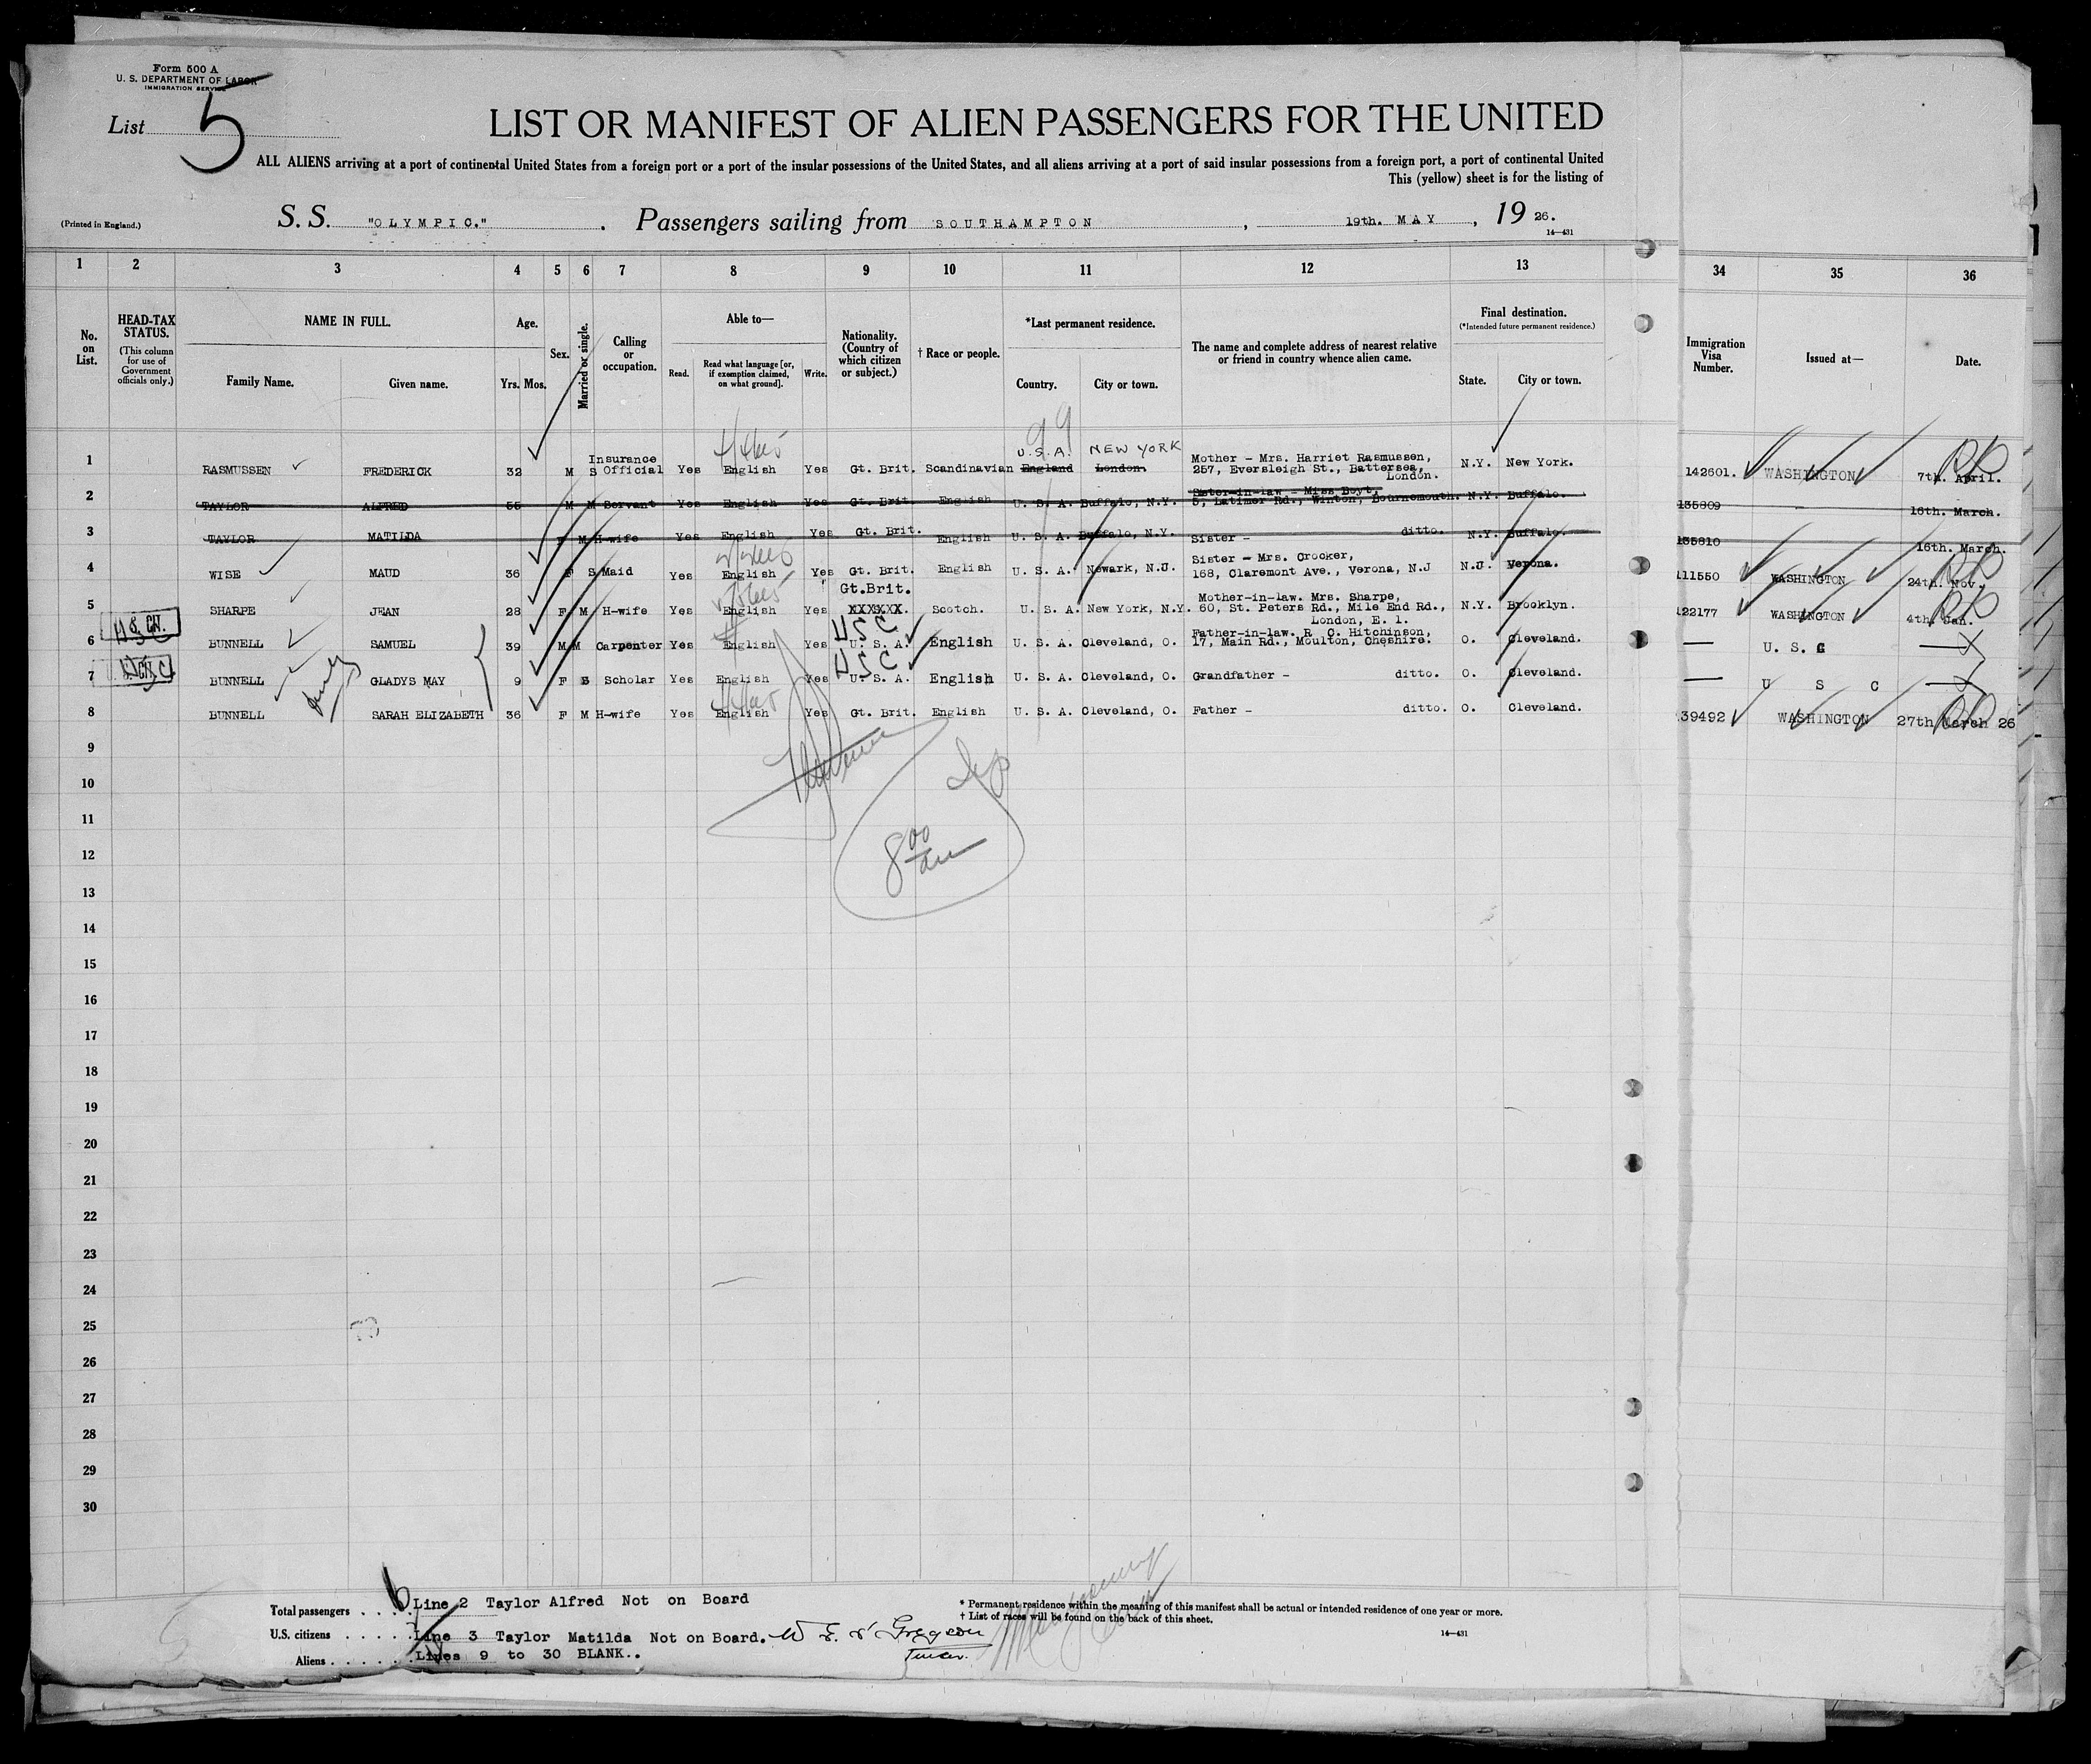 Form 500 A
U. S. DEPARTMENT OF LABOR
IMMIGRATION SERVICE
List 5
LIST OR MANIFEST OF ALIEN PASSENGERS FOR THE UNITED
ALL ALIENS arriving at a port of continental United States from a foreign port or a port of the insular possessions of the United States, and all aliens arriving at a port of said insular possessions from a foreign port, a port of continental United
This (yellow) sheet is for the listing of
(Printed in England.) S. S. "OLYMPIC." . Passengers sailing from SOUTHAMPTON , 19th. MAY , 19 26.
14—431
1 2 3 4 5 6 7 8 9 10 11 12 13 34 35 36
No. on List.
HEAD-TAX STATUS. (This column for use of Government officials only.)
NAME IN FULL. Family Name. Given name.
Age. Yrs. Mos.
Sex.
Married or single.
Calling or occupation.
Able to— Read. Read what language [or, if exemption claimed, on what ground]. Write.
Nationality. (Country of which citizen or subject.)
† Race or people.
*Last permanent residence. Country. City or town.
The name and complete address of nearest relative or friend in country whence alien came.
Final destination. (*Intended future permanent residence.) State. City or town.
Immigration Visa Number.
Issued at—
Date.
U.S.A. NEW YORK
1 RASMUSSEN FREDERICK 32 M S Insurance Official Yes English Yes Gt. Brit. Scandinavian England London. Mother - Mrs. Harriet Rasmussen, 257, Eversleigh St., Battersea, London. N.Y. New York. 142601. WASHINGTON 7th. April.
2 TAYLOR ALFRED 55 M M Servant Yes English Yes Gt. Brit. English U. S. A. Buffalo, N.Y. Sister-in-law - Miss Boyt, 5, Latimer Rd., Winton, Bournemouth. N.Y. Buffalo. 135809 16th. March.
3 TAYLOR MATILDA F M H-wife Yes English Yes Gt. Brit. English U. S. A. Buffalo, N.Y. Sister - ditto. N.Y. Buffalo. 135810 16th. March.
4 WISE MAUD 36 F S Maid Yes English Yes Gt. Brit. English U. S. A. Newark, N.J. Sister - Mrs. Crocker, 168, Claremont Ave., Verona, N.J N.J. Verona. 111550 WASHINGTON 24th. Nov.
5 SHARPE JEAN 28 F M H-wife Yes English Yes Gt.Brit. XXXXXX. Scotch. U. S. A. New York, N.Y. Mother-in-law. Mrs. Sharpe, 60, St. Peters Rd., Mile End Rd., London, E. 1. N.Y. Brooklyn. 122177 WASHINGTON 4th. Jan.
6 USC BUNNELL SAMUEL 39 M M Carpenter Yes English Yes USC U. S. A. English U. S. A. Cleveland, O. Father-in-law. R. O. Hitchinson, 17, Main Rd., Moulton, Cheshire. O. Cleveland. — U. S. C —
7 BUNNELL GLADYS MAY 9 F S Scholar Yes English Yes USC U. S. A. English U. S. A. Cleveland, O. Grandfather - ditto. O. Cleveland. — U S C —
8 BUNNELL SARAH ELIZABETH 36 F M H-wife Yes English Yes Gt. Brit. English U. S. A. Cleveland, O. Father - ditto. O. Cleveland. 39492 WASHINGTON 27th March 26
9
10
11
8 00
12
13
14
15
16
17
18
19
20
21
22
23
24
25
26
27
28
29
30
Total passengers . . . . 6 Line 2 Taylor Alfred Not on Board
* Permanent residence within the meaning of this manifest shall be actual or intended residence of one year or more.
† List of races will be found on the back of this sheet.
U.S. citizens . . . . . Line 3 Taylor Matilda Not on Board.
14—431
Aliens . . . . . . Lines 9 to 30 BLANK..